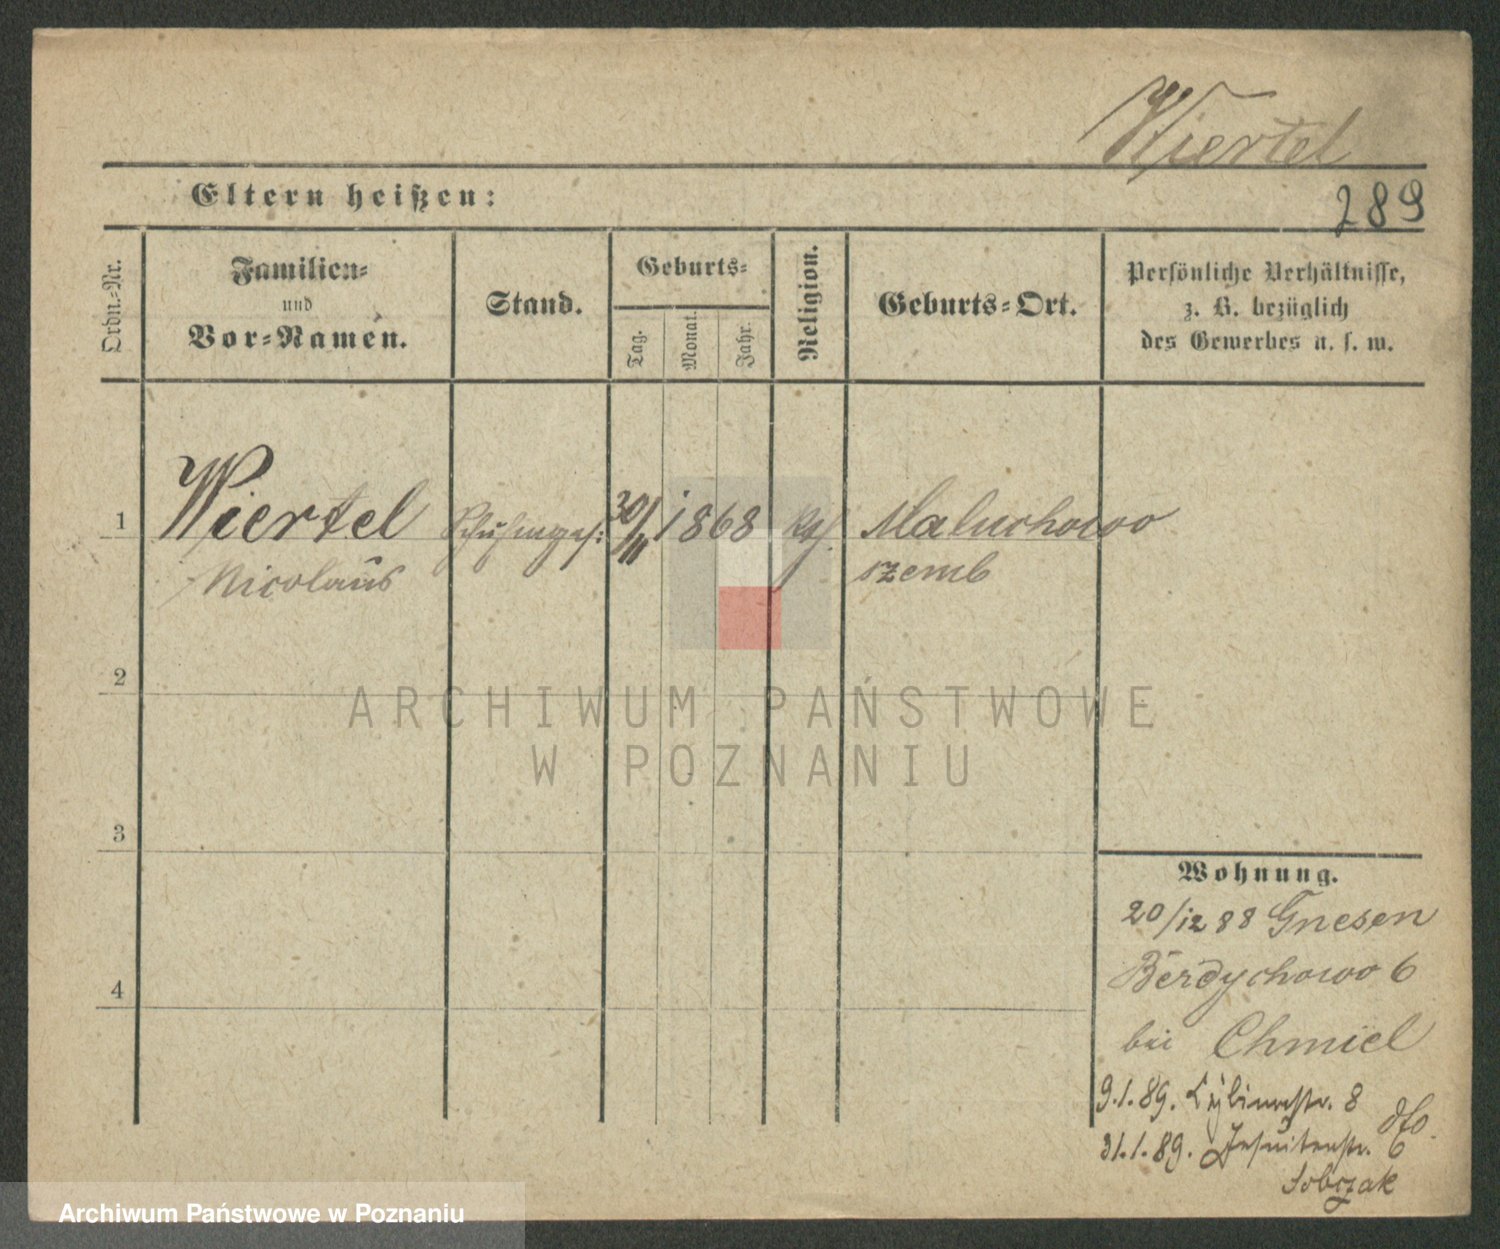 Wiertel
Eltern heißen:
289
Ordn.-Nr.
Familien-
und
Vor-Namen.
Stand.
Geburts-
Tag.
Monat.
Jahr.
Religion.
Geburts-Ort.
Persönliche Verhältnisse,
z. B. bezüglich
des Gewerbes u. s. w.
1 Wiertel 30/11 1868 kth. Maluchowo
Nicolaus szemb
2
ARCHIWUM PAŃSTWOWE
W POZNANIU
3
Wohnung.
20/12 88 Gnesen
Berdychowo 6
4
bei Chmiel
9.1.89. Cybinastr. 8 dto.
31.1.89. Jesuitenstr. 6
Sobczak
Archiwum Państwowe w Poznaniu